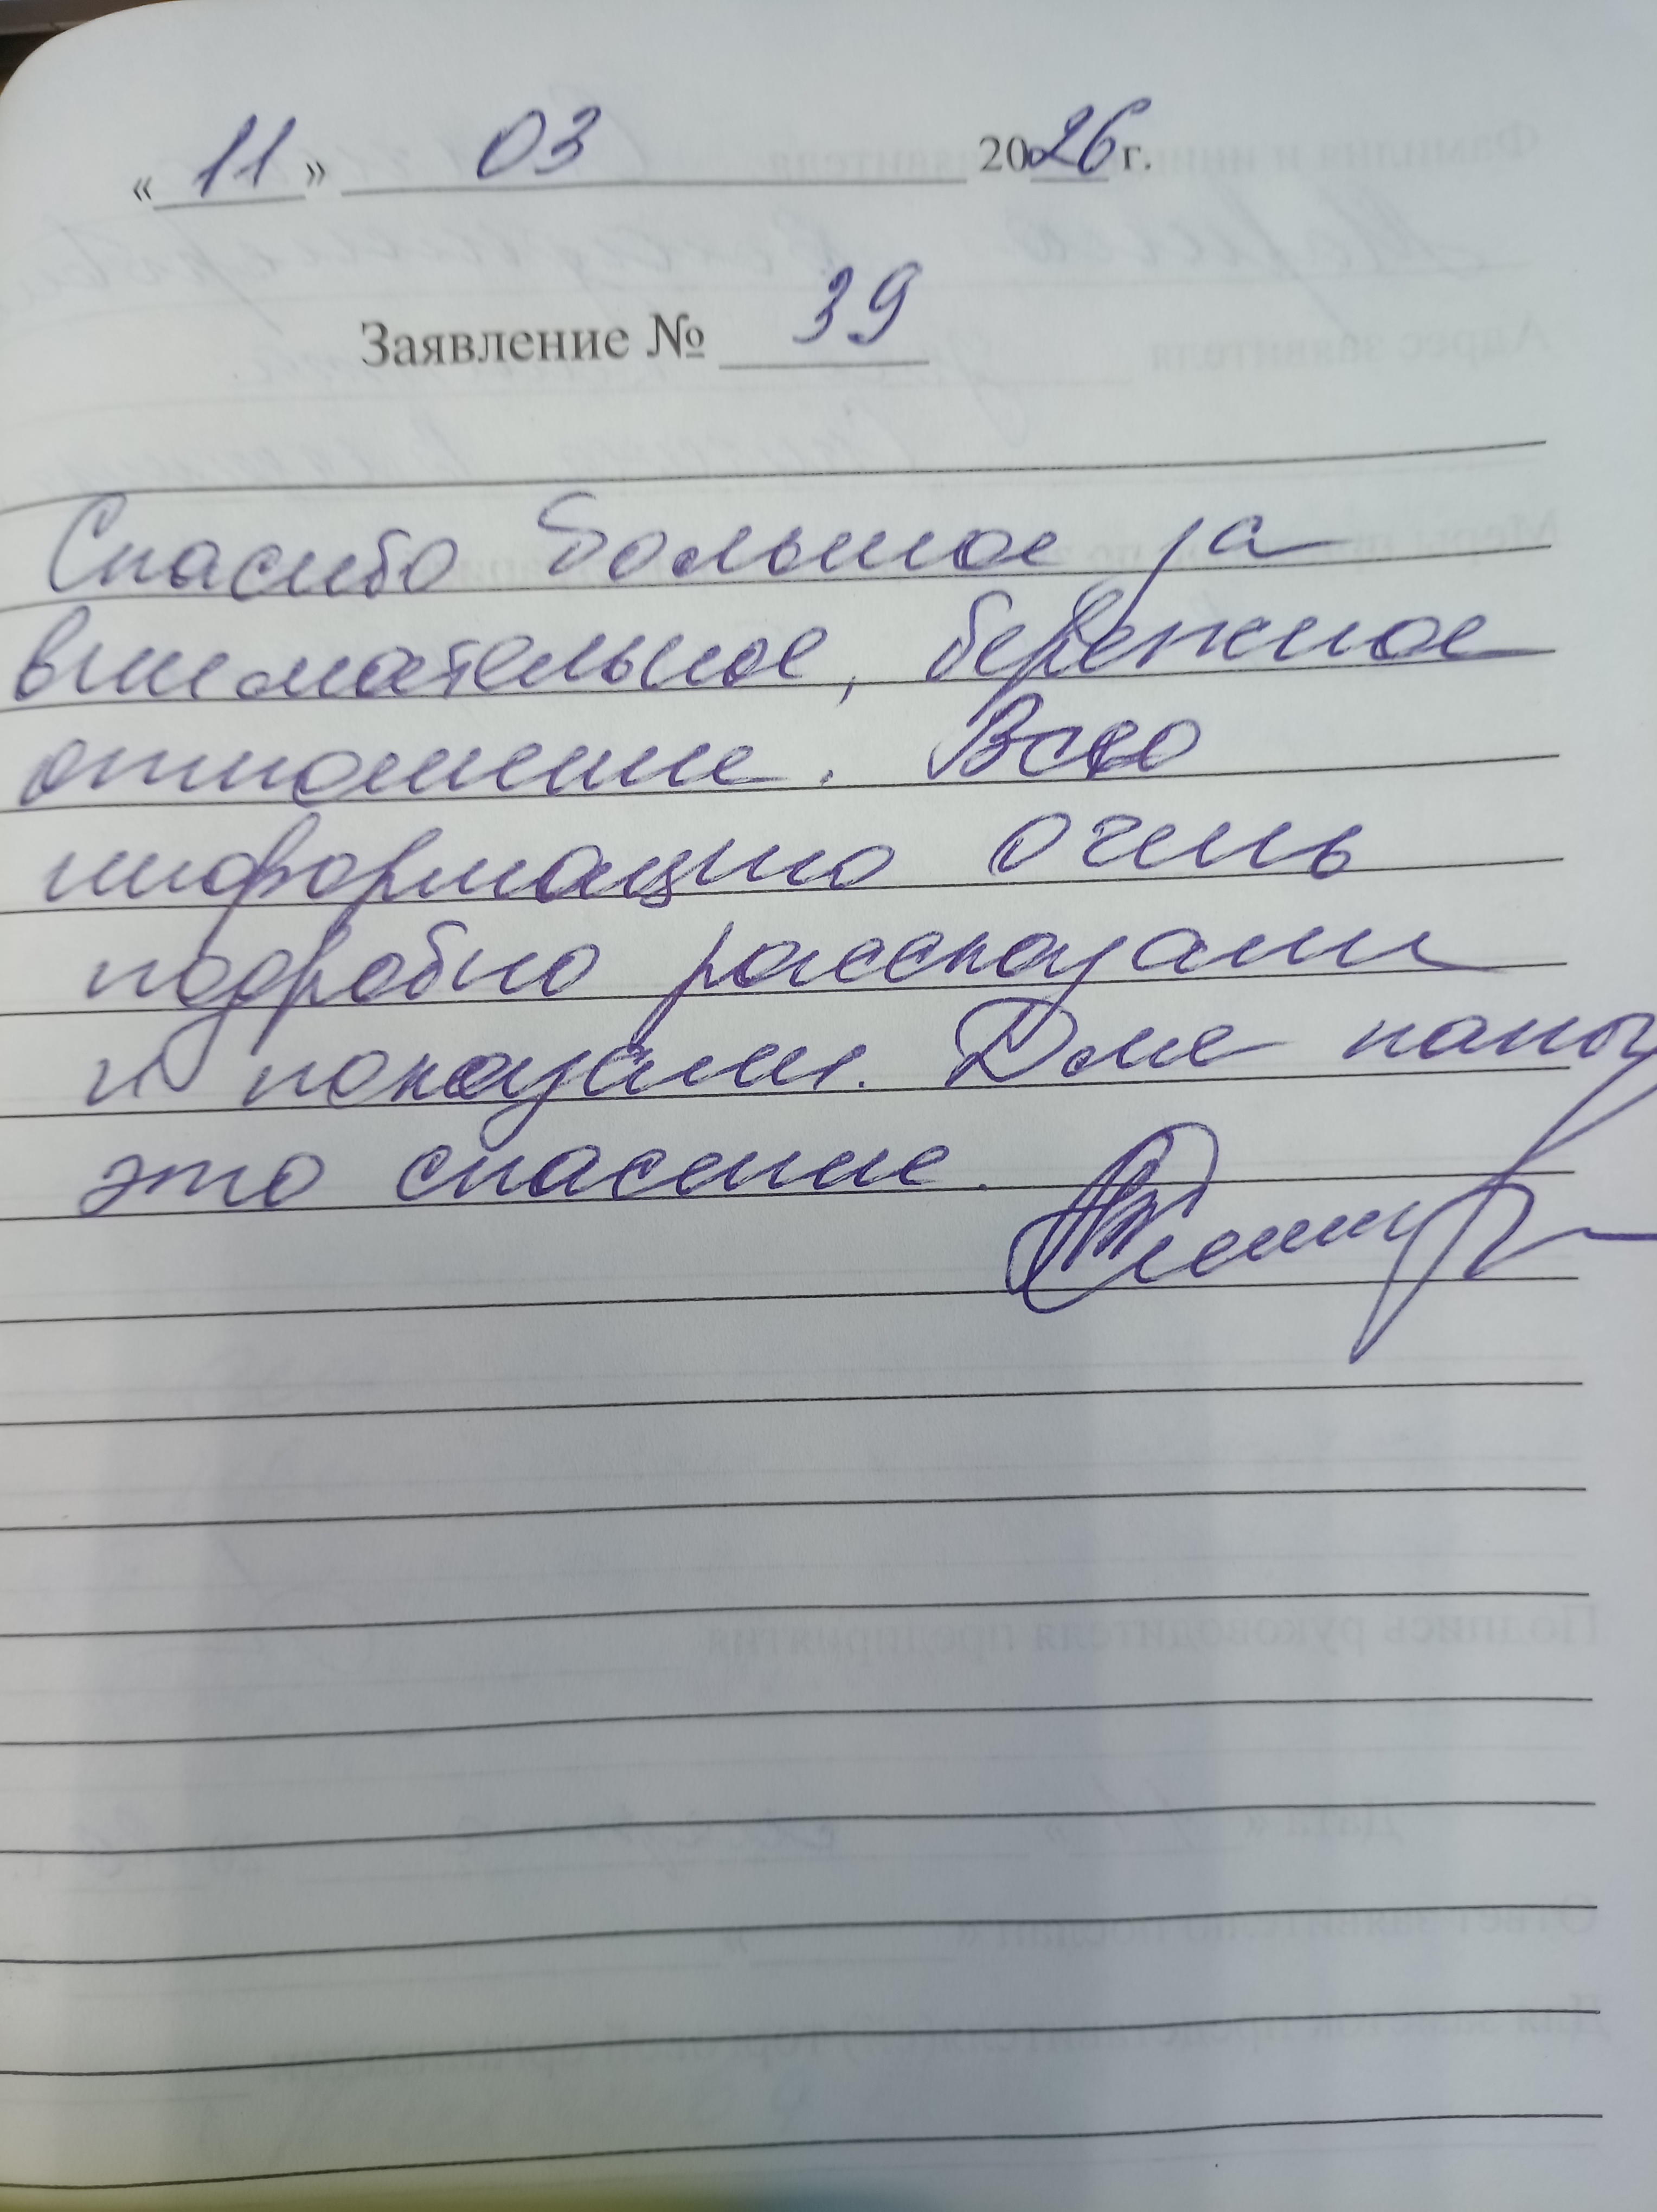 «11» 03 2026 г.
Заявление № 39
Спасибо большое за
внимательное, бережное
отношение. Всю
информацию очень
подробно рассказали
и показали. Для папы
это спасение.